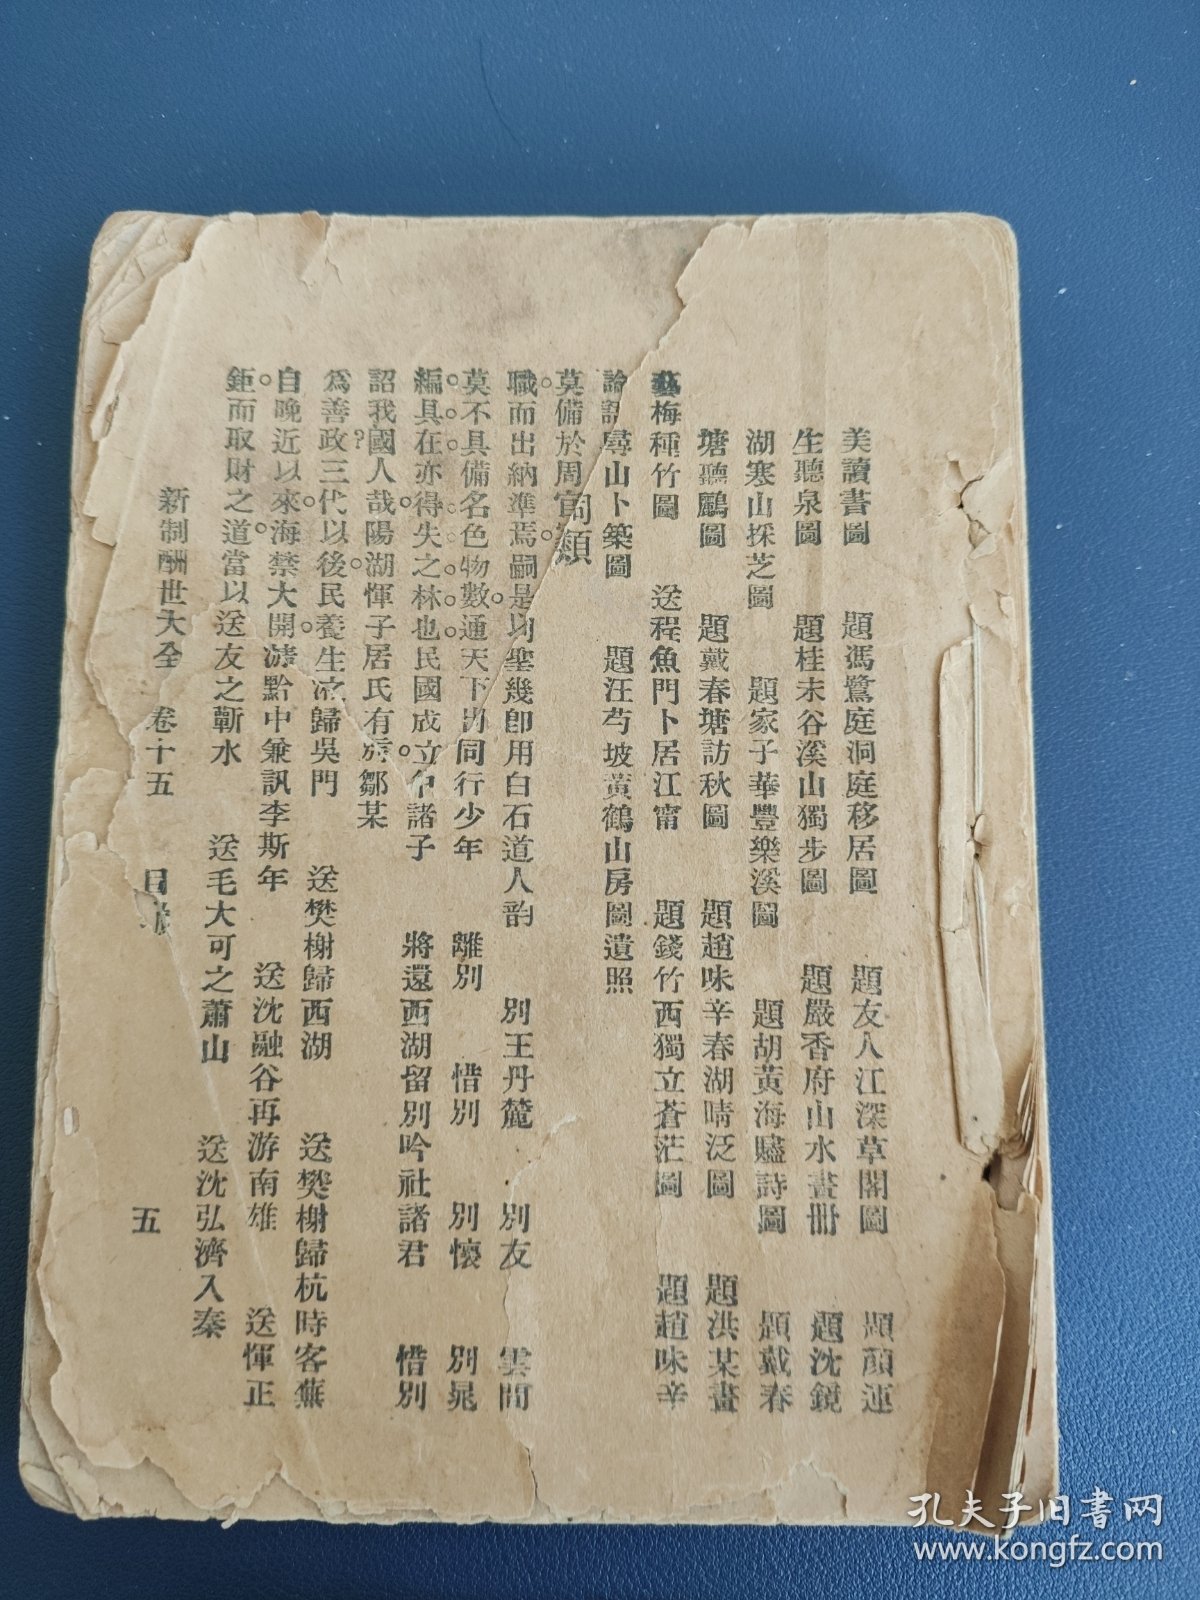 美讀書圖　題馮鷺庭洞庭移居圖　題友人江深草閣圖　題顏運
生聽泉圖　題桂未谷溪山獨步圖　題嚴香府山水畫冊　題沈鏡
湖寒山採芝圖　題家子華豐樂溪圖　題胡黃海贐詩圖　題戴春
塘聽鸝圖　題戴春塘訪秋圖　題趙味辛春湖晴泛圖　題洪某畫
藝梅種竹圖　送程魚門卜居江甯　題錢竹西獨立蒼茫圖　題趙味辛
論語 尋山卜築圖　題汪芍坡黃鶴山房圖遺照
莫備於周官 類
職而出納準焉嗣是 聖幾卽用白石道人韵　別王丹麓　別友　雲間
莫不具備名色物數通天下 同行少年　離別　惜別　別懷　別晁
編具在亦得失之林也民國成立 諸子　將還西湖留別吟社諸君　惜別
詔我國人哉陽湖惲子居氏有 鄒某
爲善政三代以後民養生 歸吳門　送樊榭歸西湖　送樊榭歸杭時客蕪
自晚近以來海禁大開 黔中兼訊李斯年　送沈融谷再游南雄　送惲正
鉅而取財之道當以送友之蘄水　送毛大可之蕭山　送沈弘濟入秦
新制酬世大全　卷十五　目　五
孔夫子旧书网
www.kongfz.com